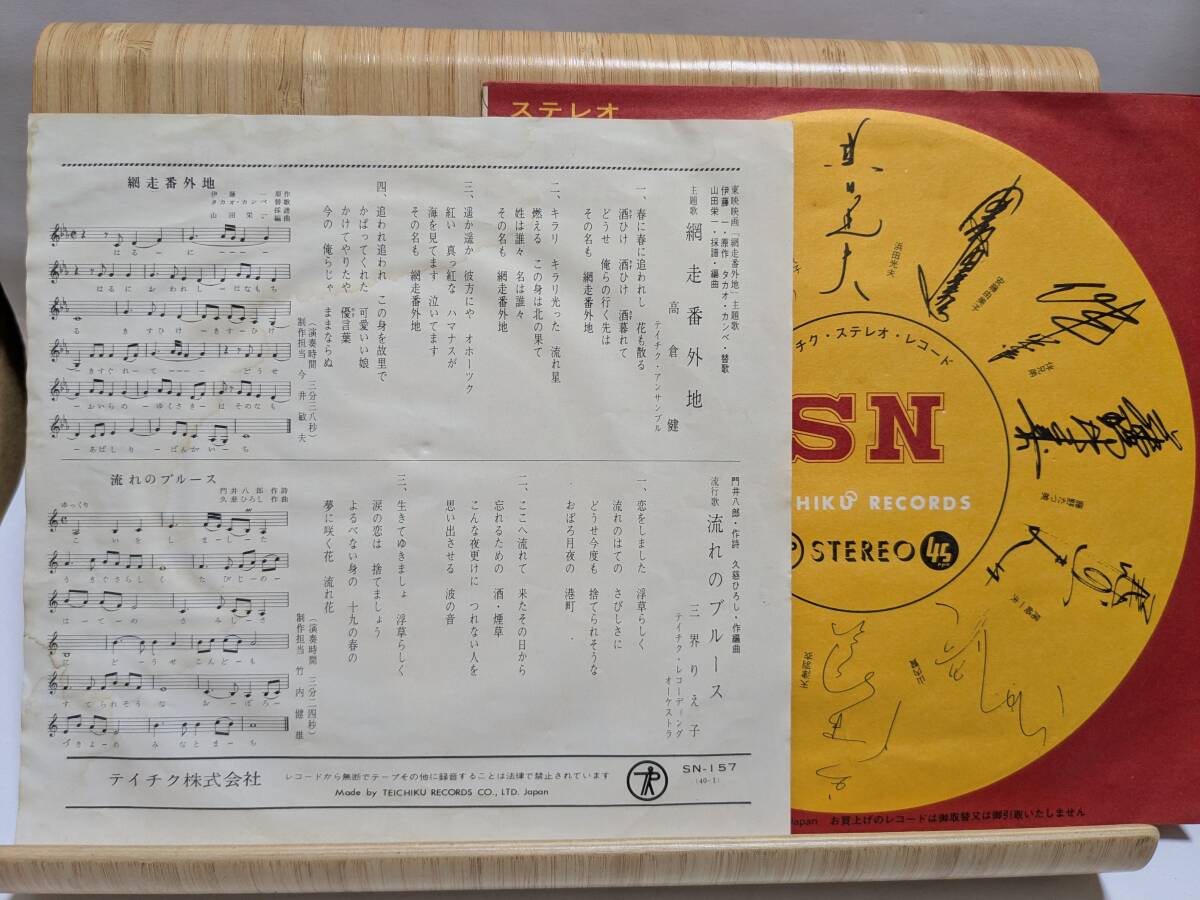 網走番外地
伊藤一 原作
タカオ・カンベ 替歌
山田栄一 採譜 編曲
はるーに ーーー
はるに おわれし ーはなもち
る きすひけ ーきすーひけ
ーきすぐれーて ーーー どうせ
ーおいらの ーゆくさきー は そのなも
ーあばしり ーばんかいーち
東映映画「網走番外地」主題歌
伊藤一・原作 タカオ・カンベ・替歌
山田栄一・採譜・編曲
主題歌 網走番外地
高倉健
テイチク・アンサンブル
一、春に春に追われし 花も散る
酒ひけ 酒ひけ 酒暮れて
どうせ 俺らの行く先は
その名も 網走番外地
二、キラリ キラリ光った 流れ星
燃える この身は北の果て
姓は誰々 名は誰々
その名も 網走番外地
三、遥か遥か 彼方にや オホーツク
紅い 真っ紅な ハマナスが
海を見てます 泣いてます
その名も 網走番外地
四、追われ追われ この身を故里で
かばってくれた 可愛いい娘
かけてやりたや 優言葉
今の 俺らじゃ ままならぬ
(演奏時間 三分二八秒)
制作担当 今井敏夫
流れのブルース
門井八郎 作詩
久慈ひろし 作曲
ゆっくり
こいをしまーした
うきぐさらしく たびじーのー
はーてーの さみしーさ
に どーうせ こんどーも
すてられそうな おーぼろー
づきよーの みなとまーち
門井八郎・作詩 久慈ひろし・作編曲
流行歌 流れのブルース
三界りえ子
テイチク・レコーディング
オーケストラ
一、恋をしました 浮草らしく
流れのはての さびしさに
どうせ今度も 捨てられそうな
おぼろ月夜の 港町
二、ここへ流れて 来たその日から
忘れるための 酒・煙草
こんな夜更けに つれない人を
思い出させる 波の音
三、生きてゆきましょ 浮草らしく
涙の恋は 捨てましょう
よるべない身の 十九の春の
夢に咲く花 流れ花
(演奏時間 三分二四秒)
制作担当 竹内健雄
テイチク株式会社
レコードから無断でテープその他に録音することは法律で禁止されています
Made by TEICHIKU RECORDS CO., LTD. Japan
SN-157
(40-1)
ステレオ
浜田光夫
チク・ステレオ・レコード
SN
HIKU RECORDS
STEREO 45
天津羽衣
Japan お買上げのレコードは御取替又は御引取いたしません